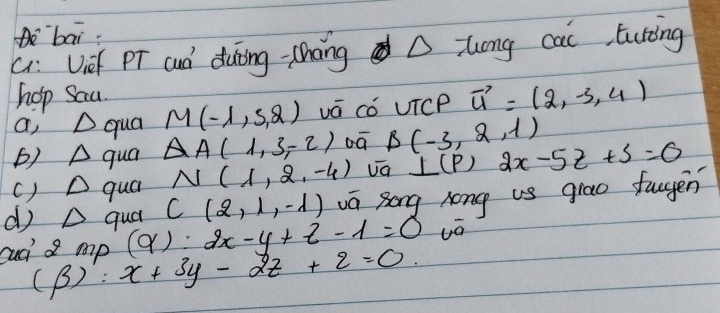 Đề bài:
C1: Viết PT của đường thẳng Δ trong các trường
hợp sau.
a, Δ qua M(-1,3,2) và có VTCP u⃗ = (2,-3,4)
b) Δ qua A(1,3,-2) và B(-3,2,1)
c) Δ qua N(1,2,-4) và ⊥(P) 2x-5z+3=0
d) Δ qua C (2,1,-1) và song song vs giao tuyến
của 2 mp (α): 2x-y+z-1=0 và
(β): x+3y-2z+2=0.